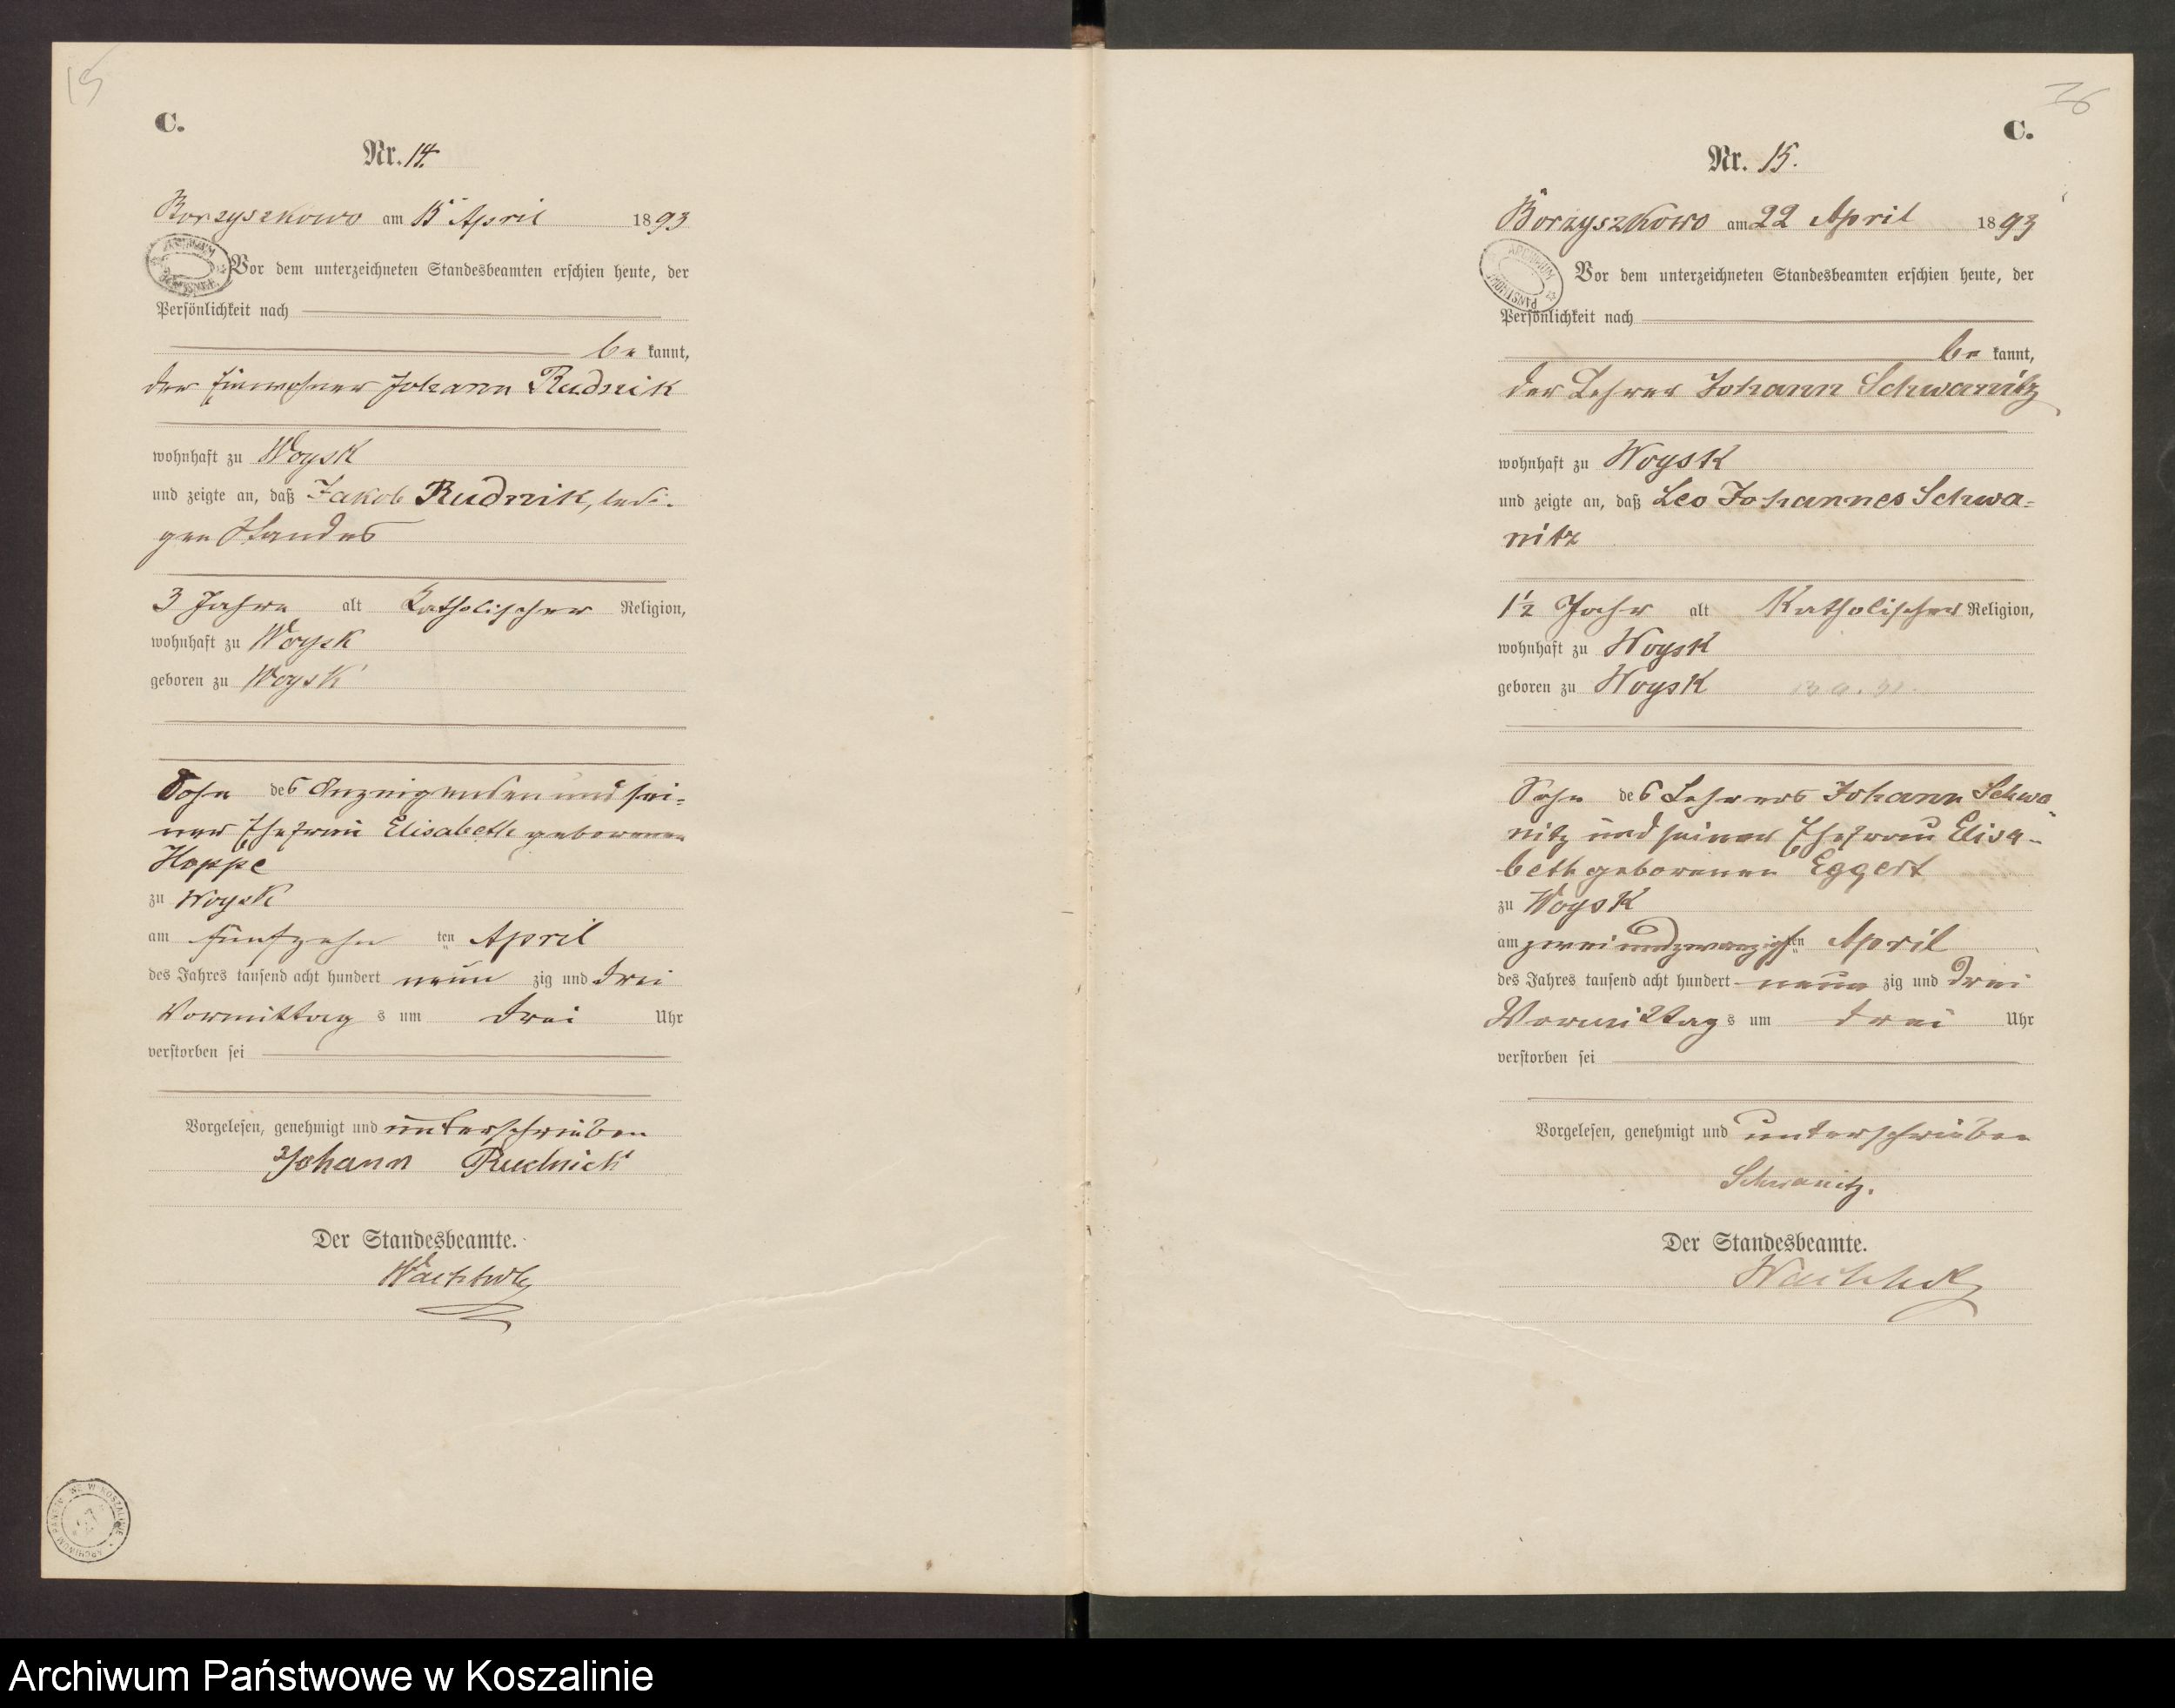 15
C.
Nr. 14.
Borzyszkowo am 15 April 1893
Vor dem unterzeichneten Standesbeamten erschien heute, der
Persönlichkeit nach
be kannt,
der Einwohner Johann Rudnik
wohnhaft zu Woysk
und zeigte an, daß Jakob Rudnik, ledi-
gen Standes
3 Jahre alt Katholischer Religion,
wohnhaft zu Woysk
geboren zu Woysk
Sohn des Anzeigenden und sei-
ner Ehefrau Elisabeth geborenen
Hoppe
zu Woysk
am fünfzehn ten April
des Jahres tausend acht hundert neun zig und drei
Vormittag s um drei Uhr
verstorben sei
Vorgelesen, genehmigt und unterschrieben
Johann Rudnick
Der Standesbeamte.
Wachholz
ARCHIWUM PAŃSTWOWE W KOSZALINIE
C.
Nr. 15.
Borzyszkowo am 22 April 1893
ARCHIWUM PAŃSTWOWE
Vor dem unterzeichneten Standesbeamten erschien heute, der
Persönlichkeit nach
be kannt,
der Lehrer Johann Schwanitz
wohnhaft zu Woysk
und zeigte an, daß Leo Johannes Schwa-
nitz
1½ Jahr alt Katholischer Religion,
wohnhaft zu Woysk
geboren zu Woysk
Sohn des Lehrers Johann Schwa-
nitz und seiner Ehefrau Elisa-
beth geborenen Eggert
zu Woysk
am zweiundzwanzigsten April
des Jahres tausend acht hundert neun zig und drei
Vormittag s um drei Uhr
verstorben sei
Vorgelesen, genehmigt und unterschrieben
Schwanitz.
Der Standesbeamte.
Wachholz
Archiwum Państwowe w Koszalinie